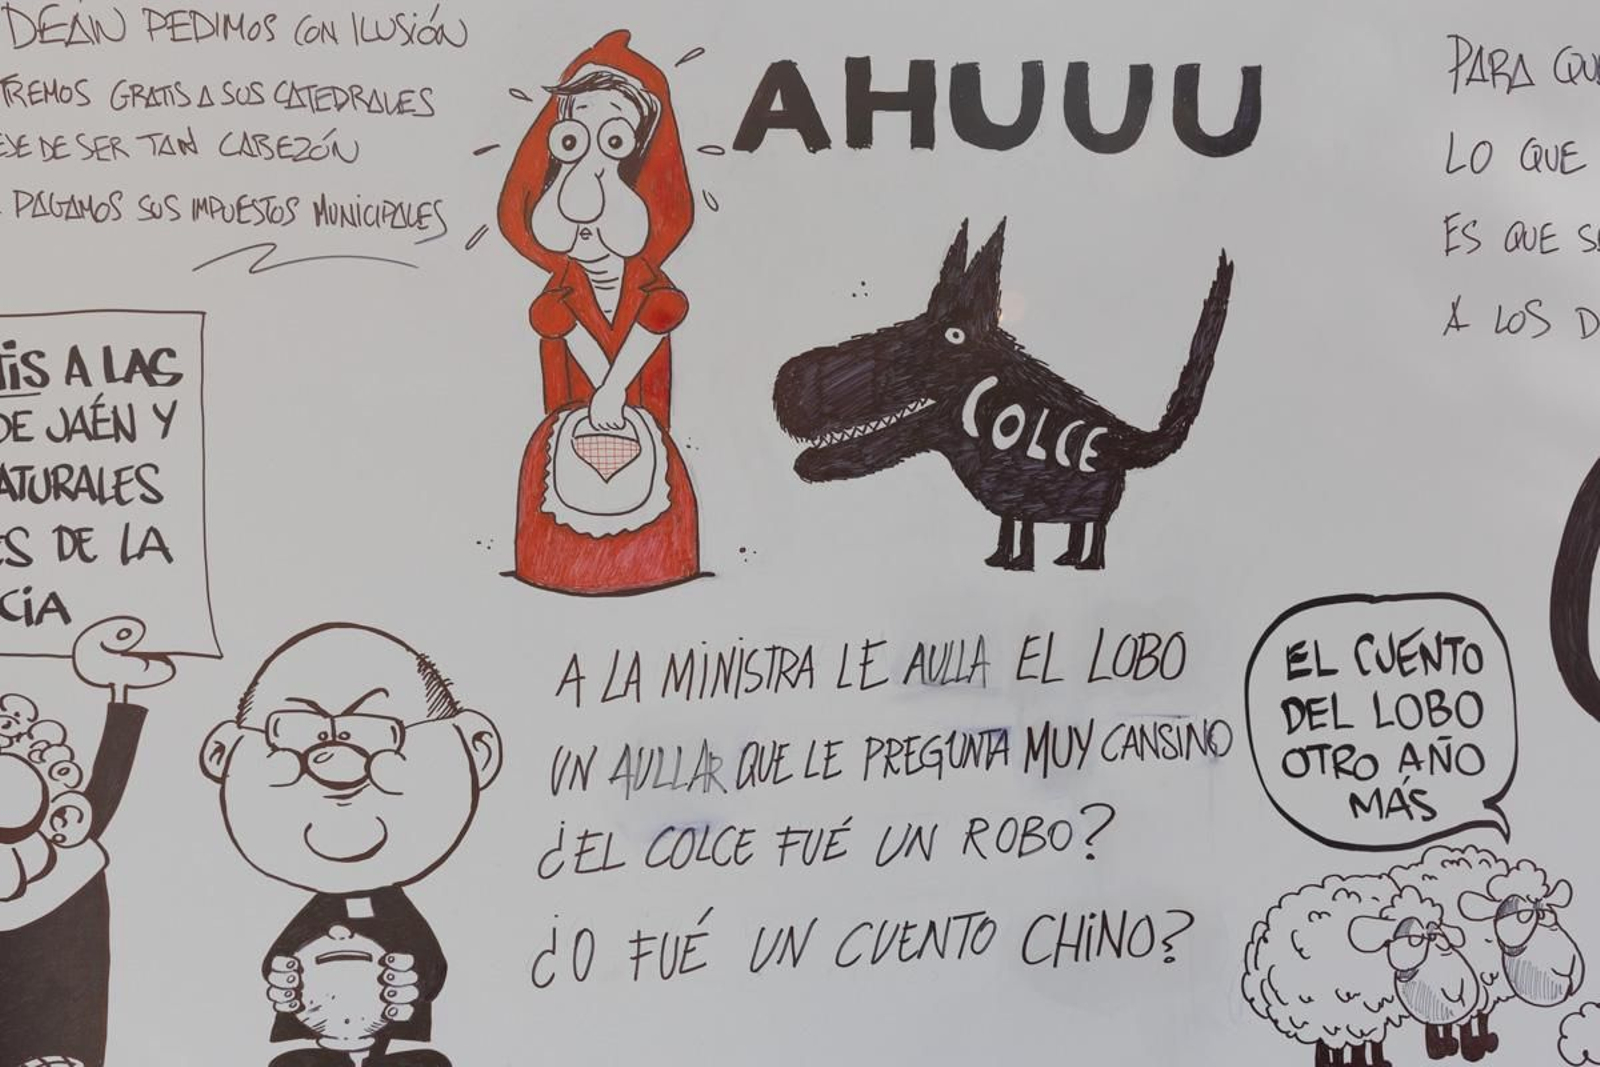 DEÁN PEDIMOS CON ILUSIÓN
GRATIS A SUS CATEDRALES
DE SER TAN CABEZÓN
PAGAMOS SUS IMPUESTOS MUNICIPALES
AHUUU
COLCE
PARA
LO QUE
ES QUE
A LOS
A LAS
DE JAÉN Y
DE LA
A LA MINISTRA LE AULLA EL LOBO
UN AULLAR QUE LE PREGUNTA MUY CANSINO
¿EL COLCE FUÉ UN ROBO?
¿O FUÉ UN CUENTO CHINO?
EL CUENTO
DEL LOBO
OTRO AÑO
MÁS